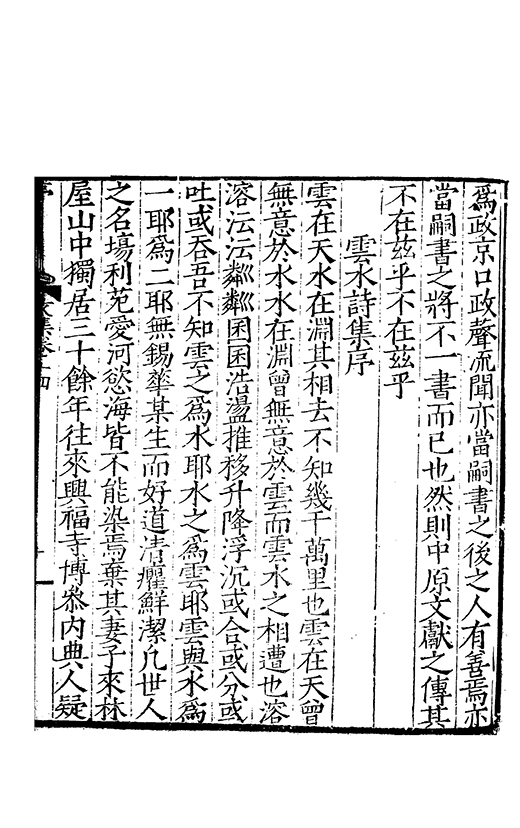 為政京口政聲流聞亦當嗣書之後之人有善焉亦
當嗣書之將不一書而已也然則中原文獻之傳其
不在茲乎不在茲乎
雲水詩集序
雲在天水在淵其相去不知幾千萬里也雲在天曾
無意於水水在淵曾無意於雲而雲水之相遭也溶
溶沄沄粼粼囷囷浩盪推移升降浮沉或合或分或
吐或吞吾不知雲之為水耶水之為雲耶雲與水為
一耶為二耶無錫華某生而好道清癯鮮潔凡世人
之名場利苑愛河慾海皆不能染焉棄其妻子來林
屋山中獨居三十餘年往來興福寺博叅內典人疑
集卷十四